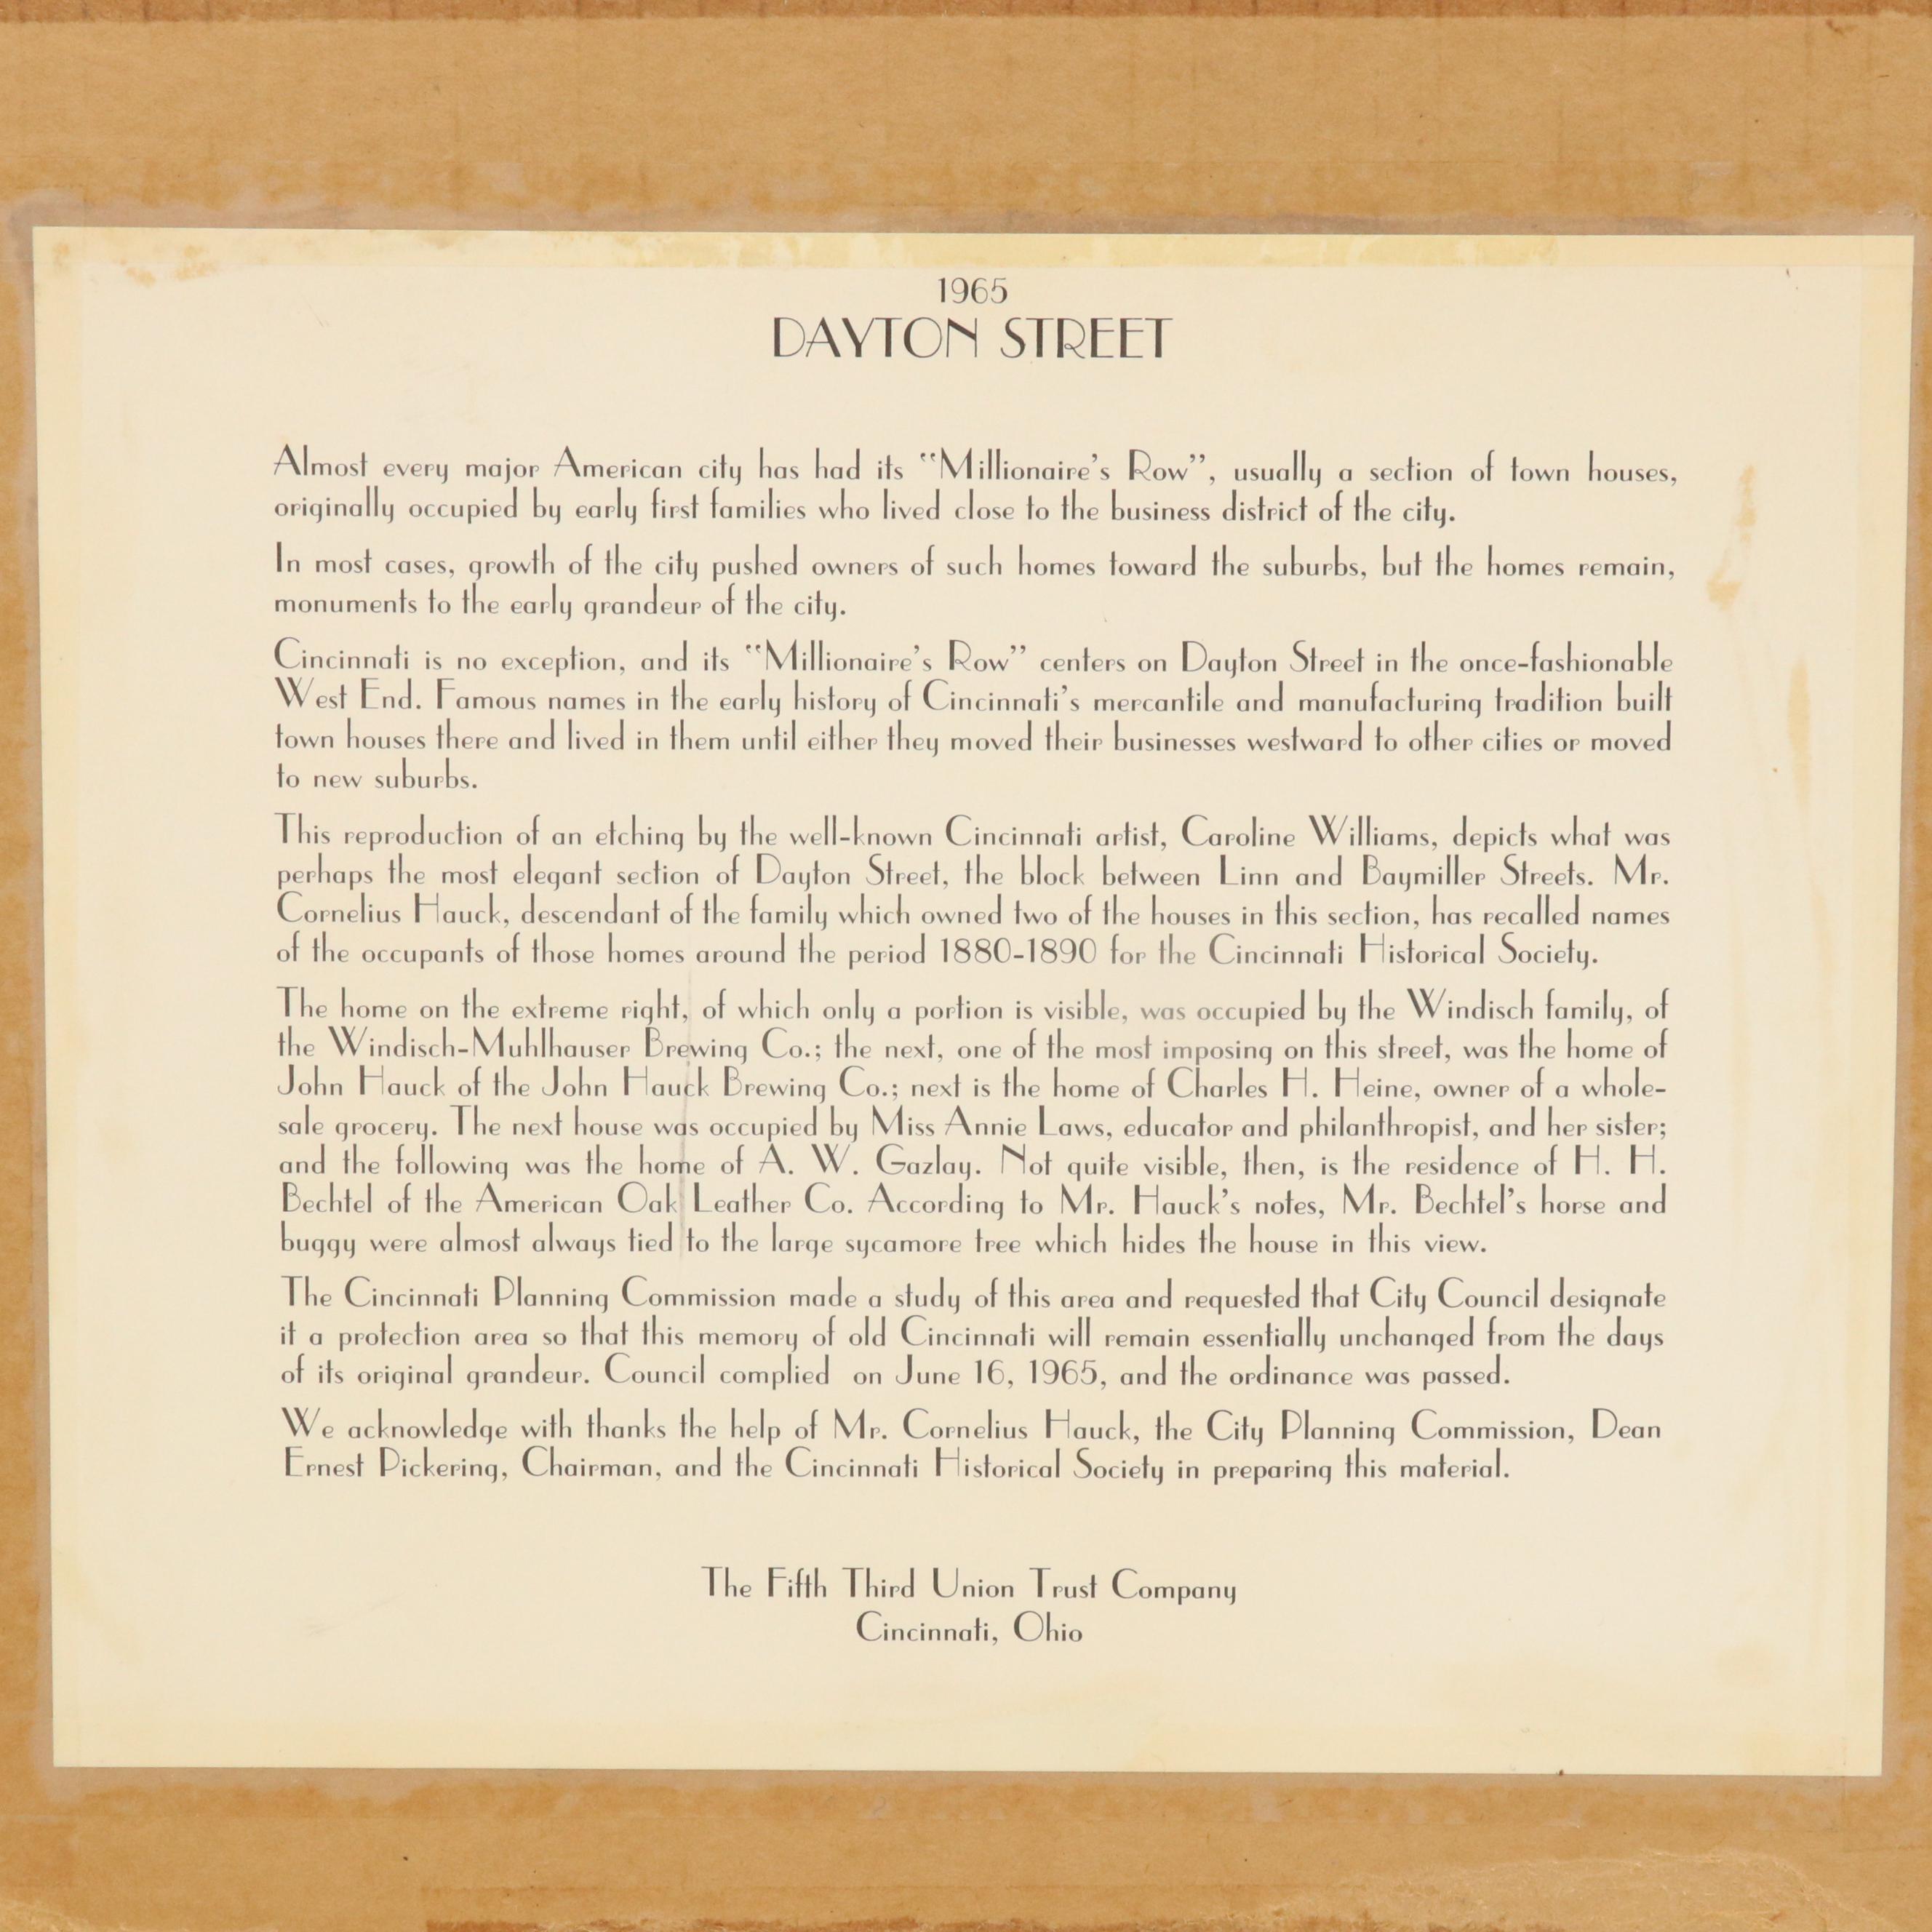 1965
DAYTON STREET
Almost every major American city has had its "Millionaire's Row", usually a section of town houses,
originally occupied by early first families who lived close to the business district of the city.
In most cases, growth of the city pushed owners of such homes toward the suburbs, but the homes remain,
monuments to the early grandeur of the city.
Cincinnati is no exception, and its "Millionaire's Row" centers on Dayton Street in the once-fashionable
West End. Famous names in the early history of Cincinnati's mercantile and manufacturing tradition built
town houses there and lived in them until either they moved their businesses westward to other cities or moved
to new suburbs.
This reproduction of an etching by the well-known Cincinnati artist, Caroline Williams, depicts what was
perhaps the most elegant section of Dayton Street, the block between Linn and Baymiller Streets. Mr.
Cornelius Hauck, descendant of the family which owned two of the houses in this section, has recalled names
of the occupants of those homes around the period 1880-1890 for the Cincinnati Historical Society.
The home on the extreme right, of which only a portion is visible, was occupied by the Windisch family, of
the Windisch-Muhlhauser Brewing Co.; the next, one of the most imposing on this street, was the home of
John Hauck of the John Hauck Brewing Co.; next is the home of Charles H. Heine, owner of a whole-
sale grocery. The next house was occupied by Miss Annie Laws, educator and philanthropist, and her sister;
and the following was the home of A. W. Gazlay. Not quite visible, then, is the residence of H. H.
Bechtel of the American Oak Leather Co. According to Mr. Hauck's notes, Mr. Bechtel's horse and
buggy were almost always tied to the large sycamore tree which hides the house in this view.
The Cincinnati Planning Commission made a study of this area and requested that City Council designate
it a protection area so that this memory of old Cincinnati will remain essentially unchanged from the days
of its original grandeur. Council complied on June 16, 1965, and the ordinance was passed.
We acknowledge with thanks the help of Mr. Cornelius Hauck, the City Planning Commission, Dean
Ernest Pickering, Chairman, and the Cincinnati Historical Society in preparing this material.
The Fifth Third Union Trust Company
Cincinnati, Ohio